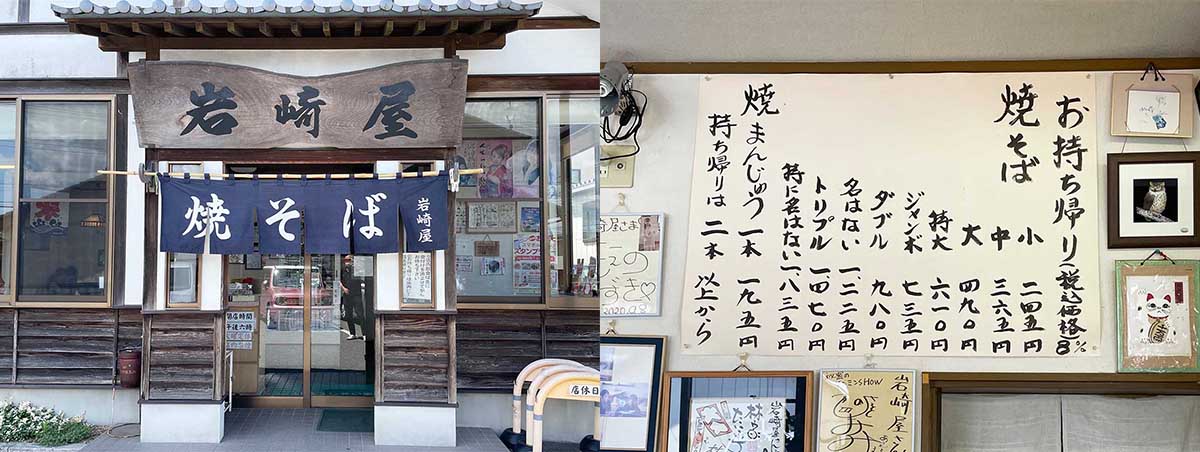 岩崎屋
焼そば
岩崎屋
閉店時間
午後六時
店休日
お持ち帰り(税込価格8%)
焼そば
小 二四五円
中 三六五円
大 四九〇円
特大 六一〇円
ジャンボ 七三五円
ダブル 九八〇円
名はない 一、二二五円
トリプル 一四七〇円
特に名はない 一、八三五円
焼まんじゅう 一本 一九五円
持ち帰りは 二本 以上から
岩崎屋さん